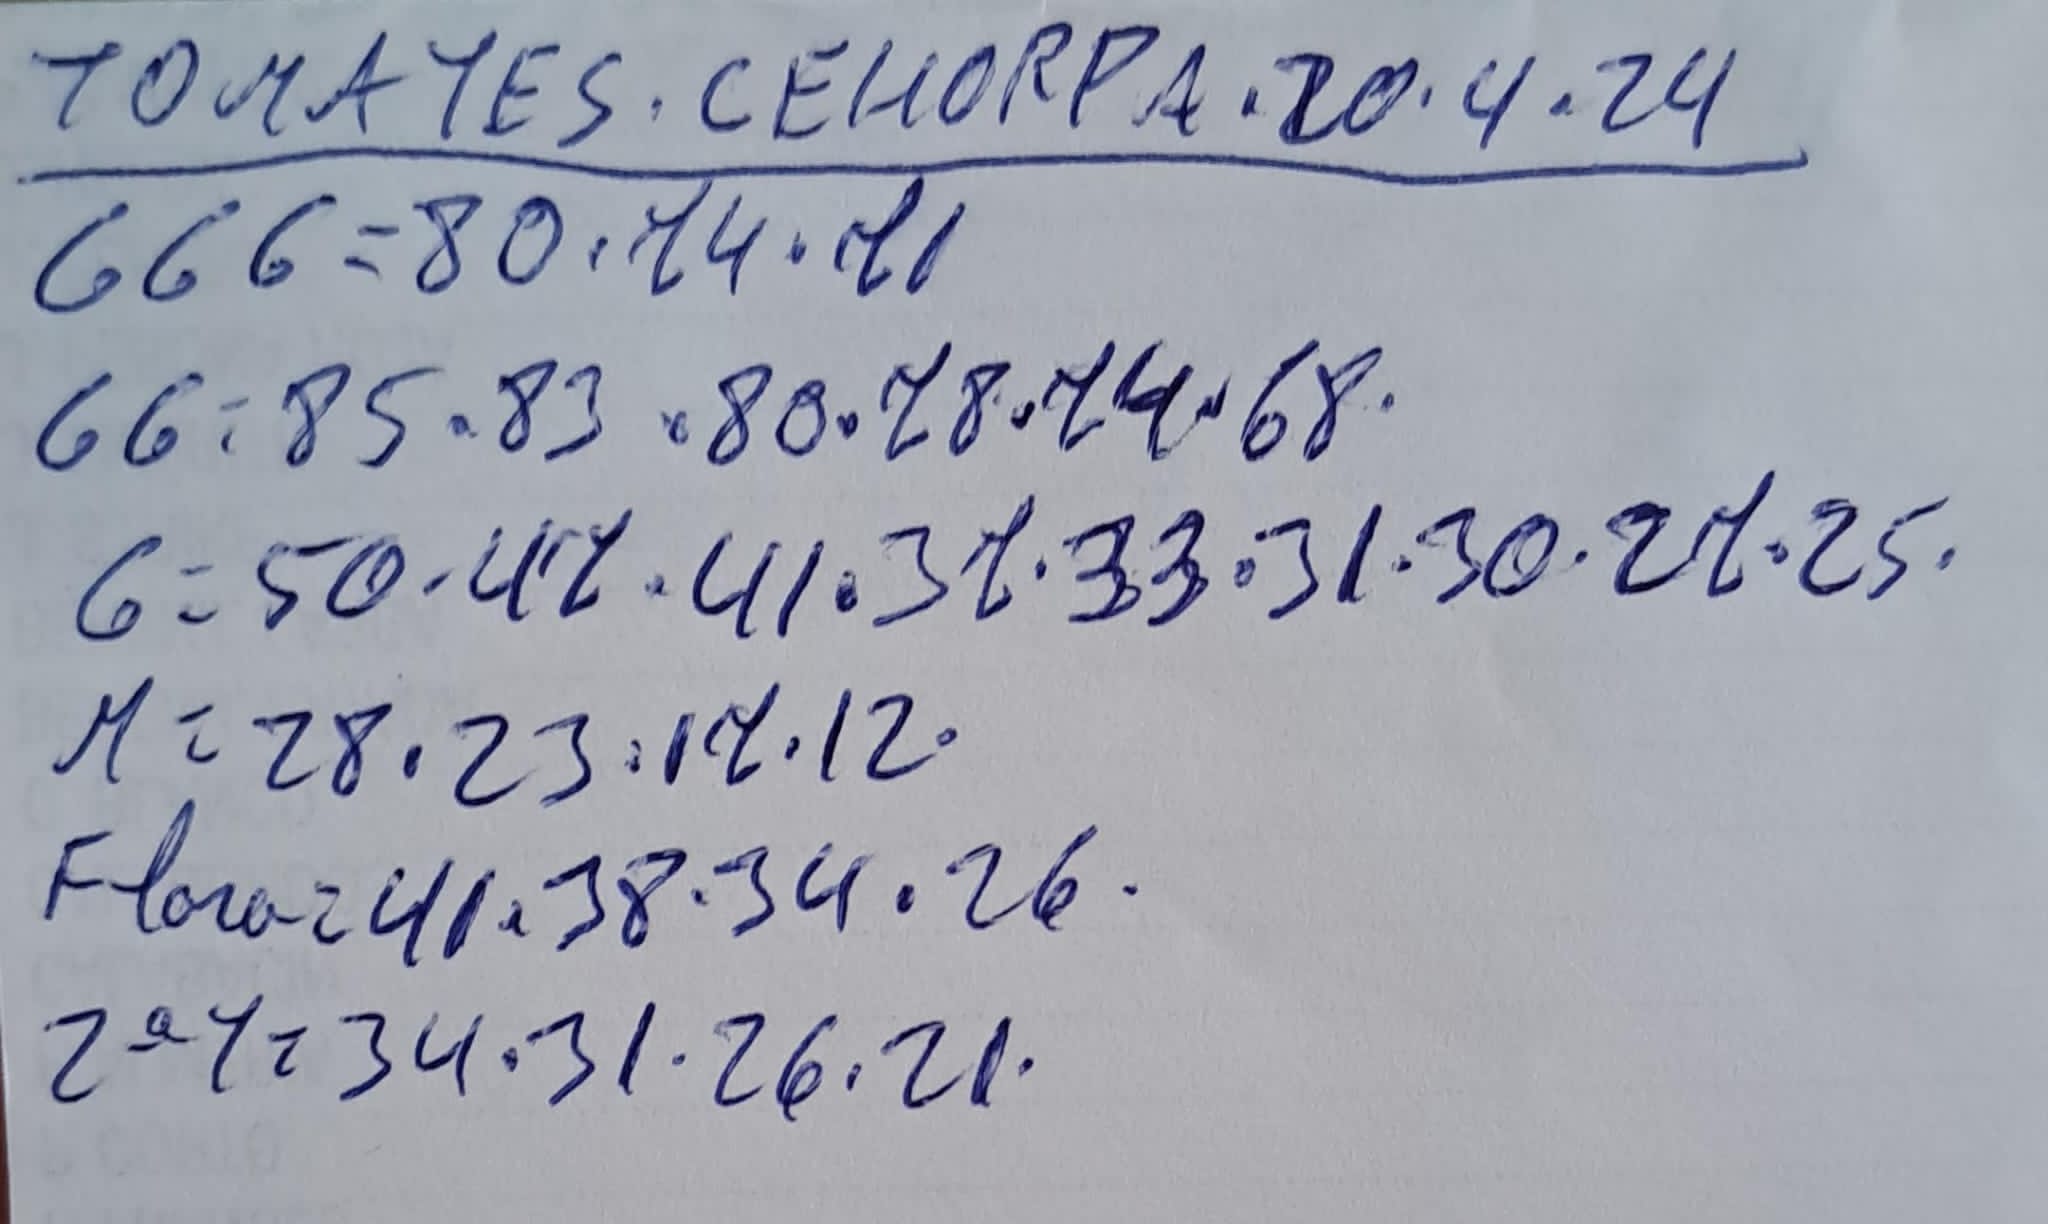 TOMATES. CEHORPA. 20.4.24
GGG=80.74.71
GG=85.83.80.78.74.68.
G=50.47.41.37.33.31.30.27.25.
M=28.23.17.12.
Flora=41.38.34.26.
2ªY=34.31.26.21.